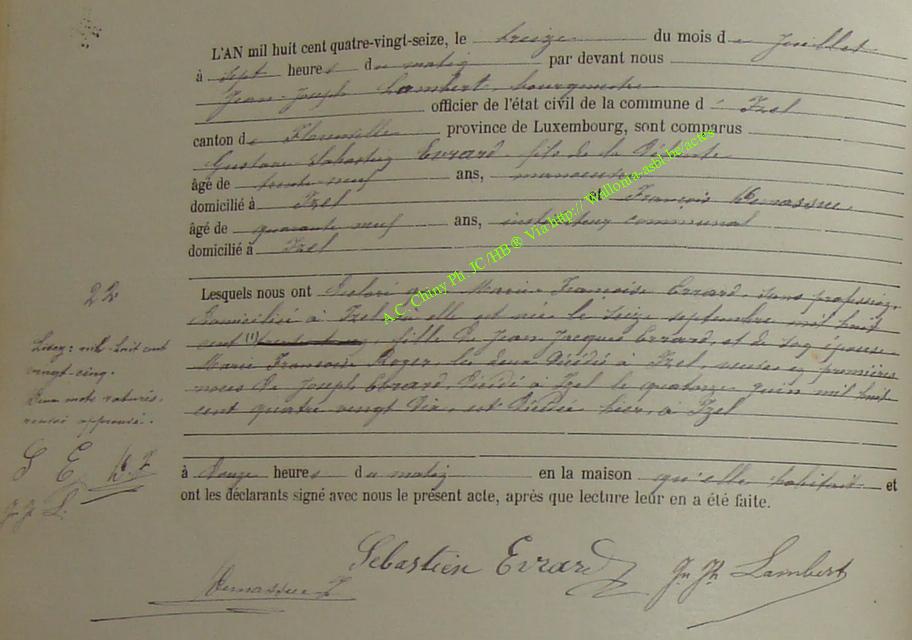 L'AN mil huit cent quatre-vingt-seize, le treize du mois de Juillet
à sept heures du matin par devant nous
Jean-Joseph Lambert, bourgmestre
officier de l'état civil de la commune d' Izel
canton de Florenville province de Luxembourg, sont comparus
Gustave Sébastien Evrard, fils de la Défunte
âgé de trente-neuf ans, manoeuvre
domicilié à Izel et François Demassue,
âgé de quarante neuf ans, instituteur communal
domicilié à Izel
Lesquels nous ont déclaré que Marie Françoise Evrard, sans profession,
domiciliée à Izel où elle est née le seize septembre mil huit
cent (1) fille de Jean Jacques Evrard, et de son épouse
Marie Françoise Roger les deux décédés à Izel, veuve en premières
noces de Joseph Evrard, décédé à Izel le quatorze juin mil huit
cent quatre vingt dix, est décédée hier, à Izel
à onze heures du matin en la maison qu'elle habitait et
ont les déclarants signé avec nous le présent acte, après que lecture leur en a été faite.
22
Lisez: mil-huit cent
vingt-cinq.
Deux mots raturés,
renvoi approuvé.
S E
J. J. L.
Sebastien Evrard
Jn Jh Lambert
Demassue F
A.C. Chiny Ph. JC/HB® Via http:// Wallonia-asbl.be/actes